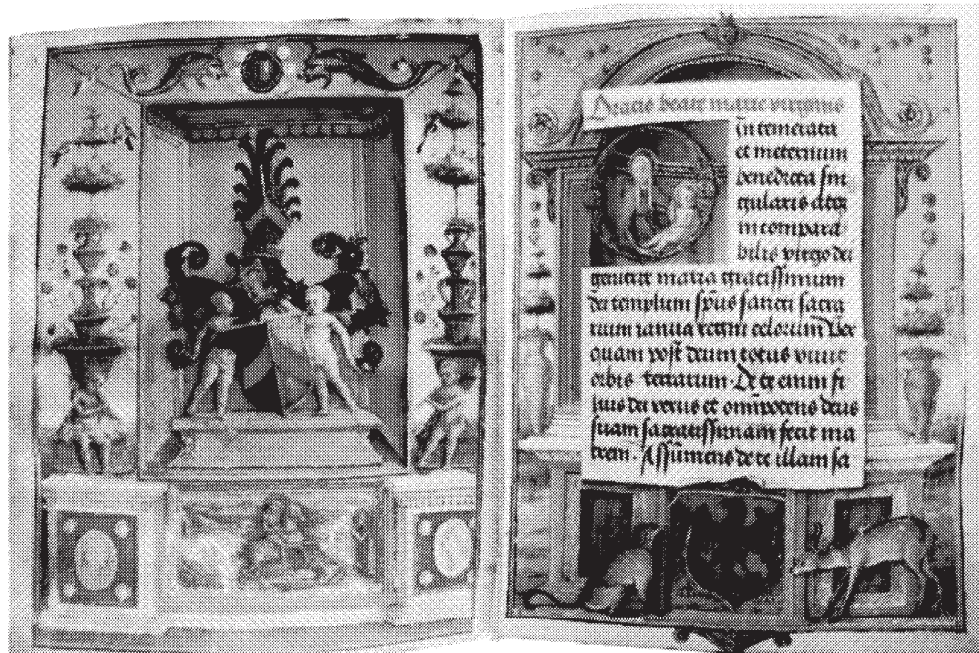 Oracio beate marie virginis
intemerata
et ineternum
benedicta sin
gularis atqz
incompara
bilis virgo dei
genitrix maria gracissimum
dei templum spus sancti sacra
rium ianua regni celorum per
quam post deum totus vivit
orbis terrarum. De te enim fi
lius dei verus et omnipotens deus
suam sacratissimam fecit ma
trem. Assumens de te illam sa